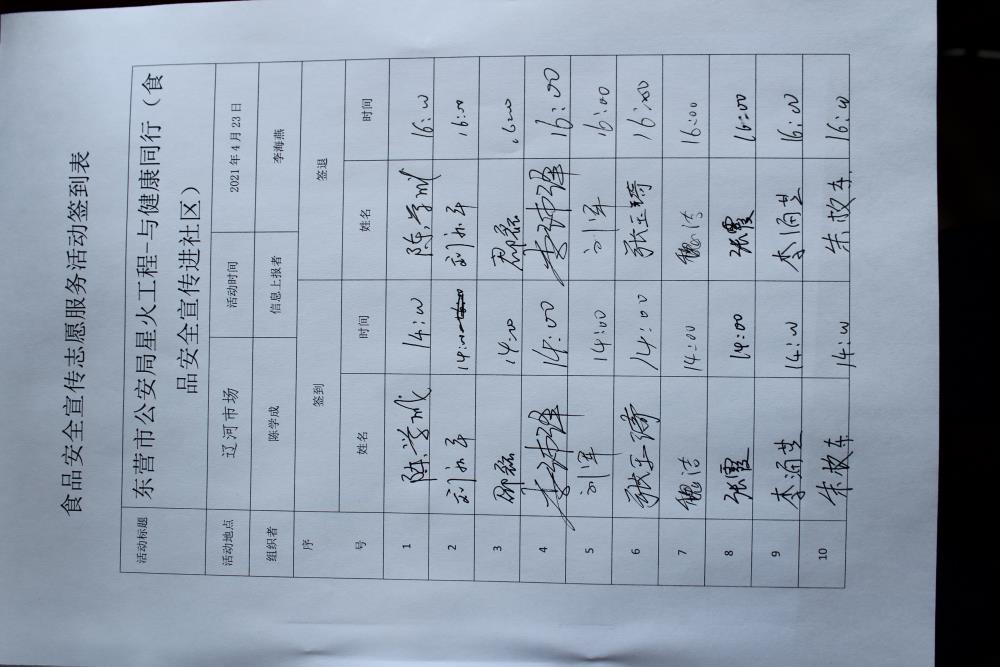 食品安全宣传志愿服务活动签到表
活动标题 东营市公安局星火工程-与健康同行（食
品安全宣传进社区）
活动地点 辽河市场 活动时间 2021年4月23日
组织者 陈学成 信息上报者 李海燕
序 签到 签退
号 姓名 时间 姓名 时间
1 陈学成 14:00 陈学成 16:00
2 刘永年 14:00 刘永年 16:00
3 邵磊 14:00 邵磊 16:00
4 14:00 16:00
5 刘军 14:00 刘军 16:00
6 14:00 16:00
7 魏洁 14:00 魏洁 16:00
8 张霞 14:00 张霞 16:00
9 14:00 16:00
10 14:00 16:00